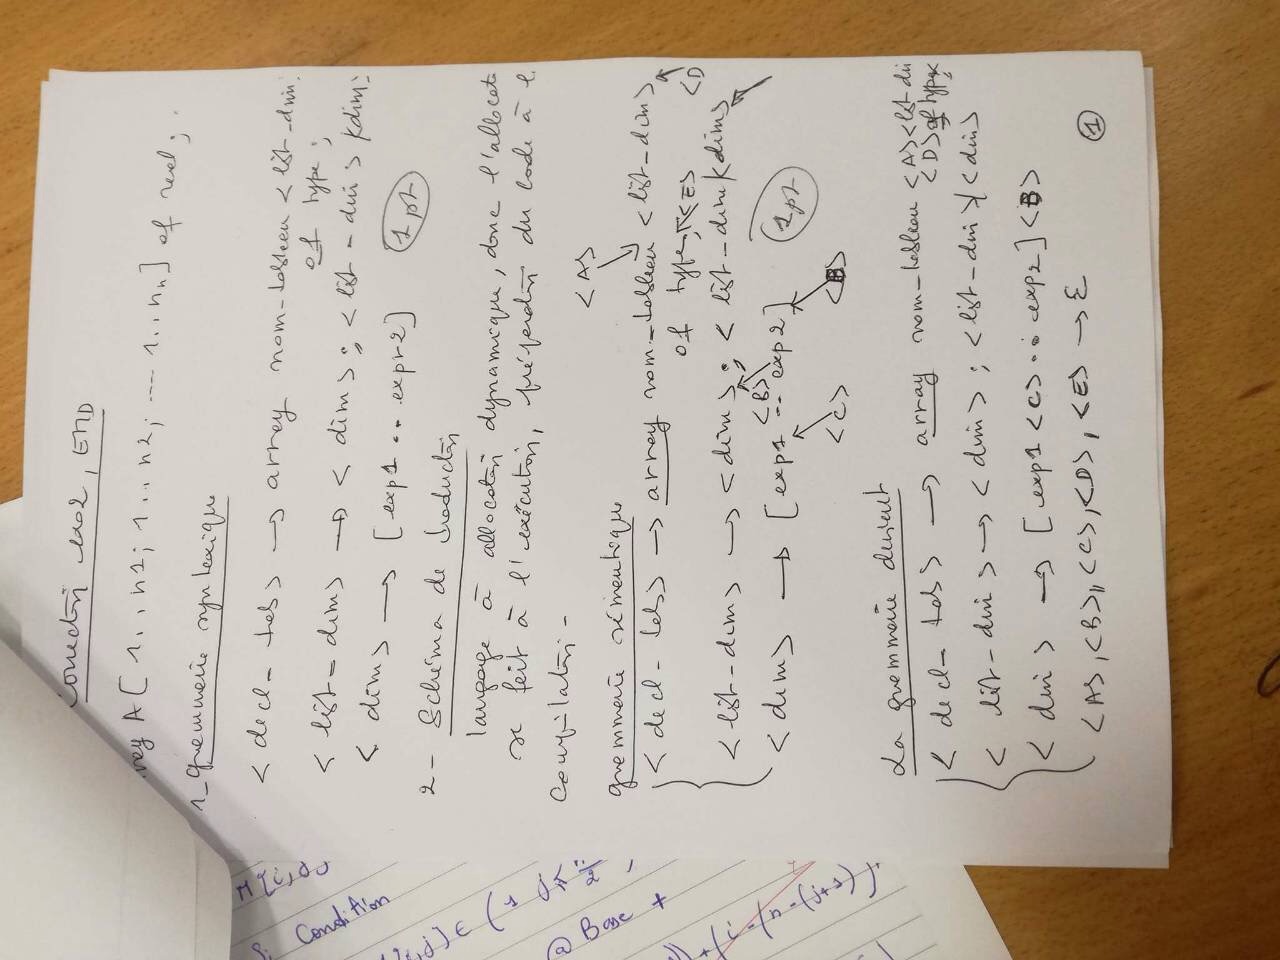 Correction exo2, EMD
array A [ 1..n1; 1..n2; --- 1..nn] of real;
1_ grammaire syntaxique
<decl-tab> → array nom-tableau <list-dim>
of type;
<list-dim> → <dim> ; <list-dim> / <dim>
<dim> → [exp1 .. expr2]
1pt
2- Schéma de traduction
langage à allocation dynamique, donc l'allocat
se fait à l'exécution, génération du code à l
compilation.
<A>
grammaire sémantique
<decl-tab> → array nom-tableau <list-dim>
of type; <E>
<D
<list-dim> → <dim> ; <list-dim> / <dim>
<B>
<dim> → [exp1 .. exp2]
1pt
<C>
<B>
La grammaire devient
<decl-tab> → array nom-tableau <A> <list-dim
<D> of type
<list-dim> → <dim> ; <list-dim> / <dim>
<dim> → [exp1 <C> .. exp2] <B>
<A>, <B>, <C>, <D>, <E> → ε
1
M[i,j]
Si Condition
[i,j] ∈ (1 j ≤ n/2,
@ Base +
+ (i - (n-(j+1))